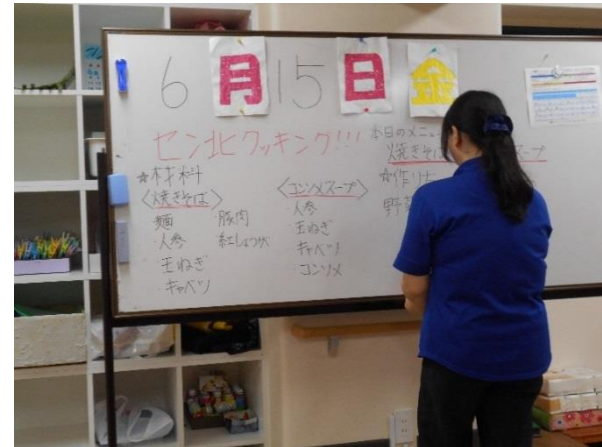 6月15日金
セン北クッキング!!!
本日のメニュー
焼きそば
スープ
☆材料
〈焼きそば〉
麺
人参
玉ねぎ
キャベツ
豚肉
紅しょうが
〈コンソメスープ〉
人参
玉ねぎ
キャベツ
コンソメ
☆作り方
野菜